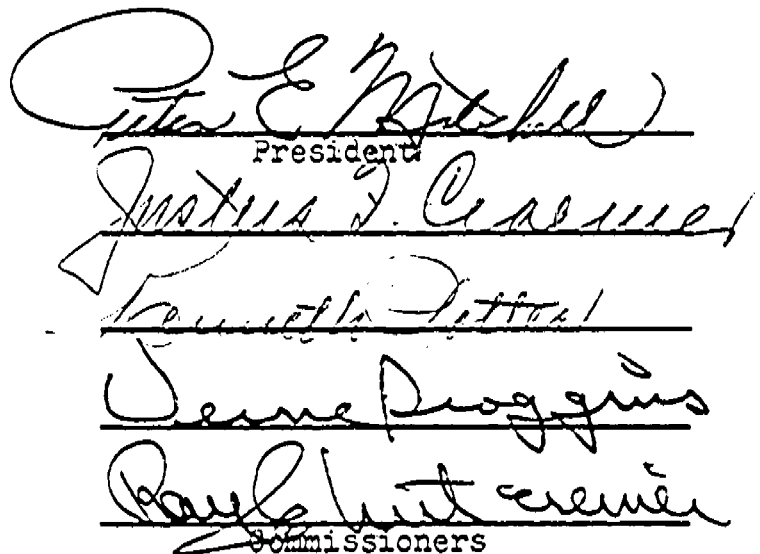 Peter E Mitchell
President
Justus F. Craemer
Kenneth Potter
Verne Scoggins
Ray E Untereiner
Commissioners